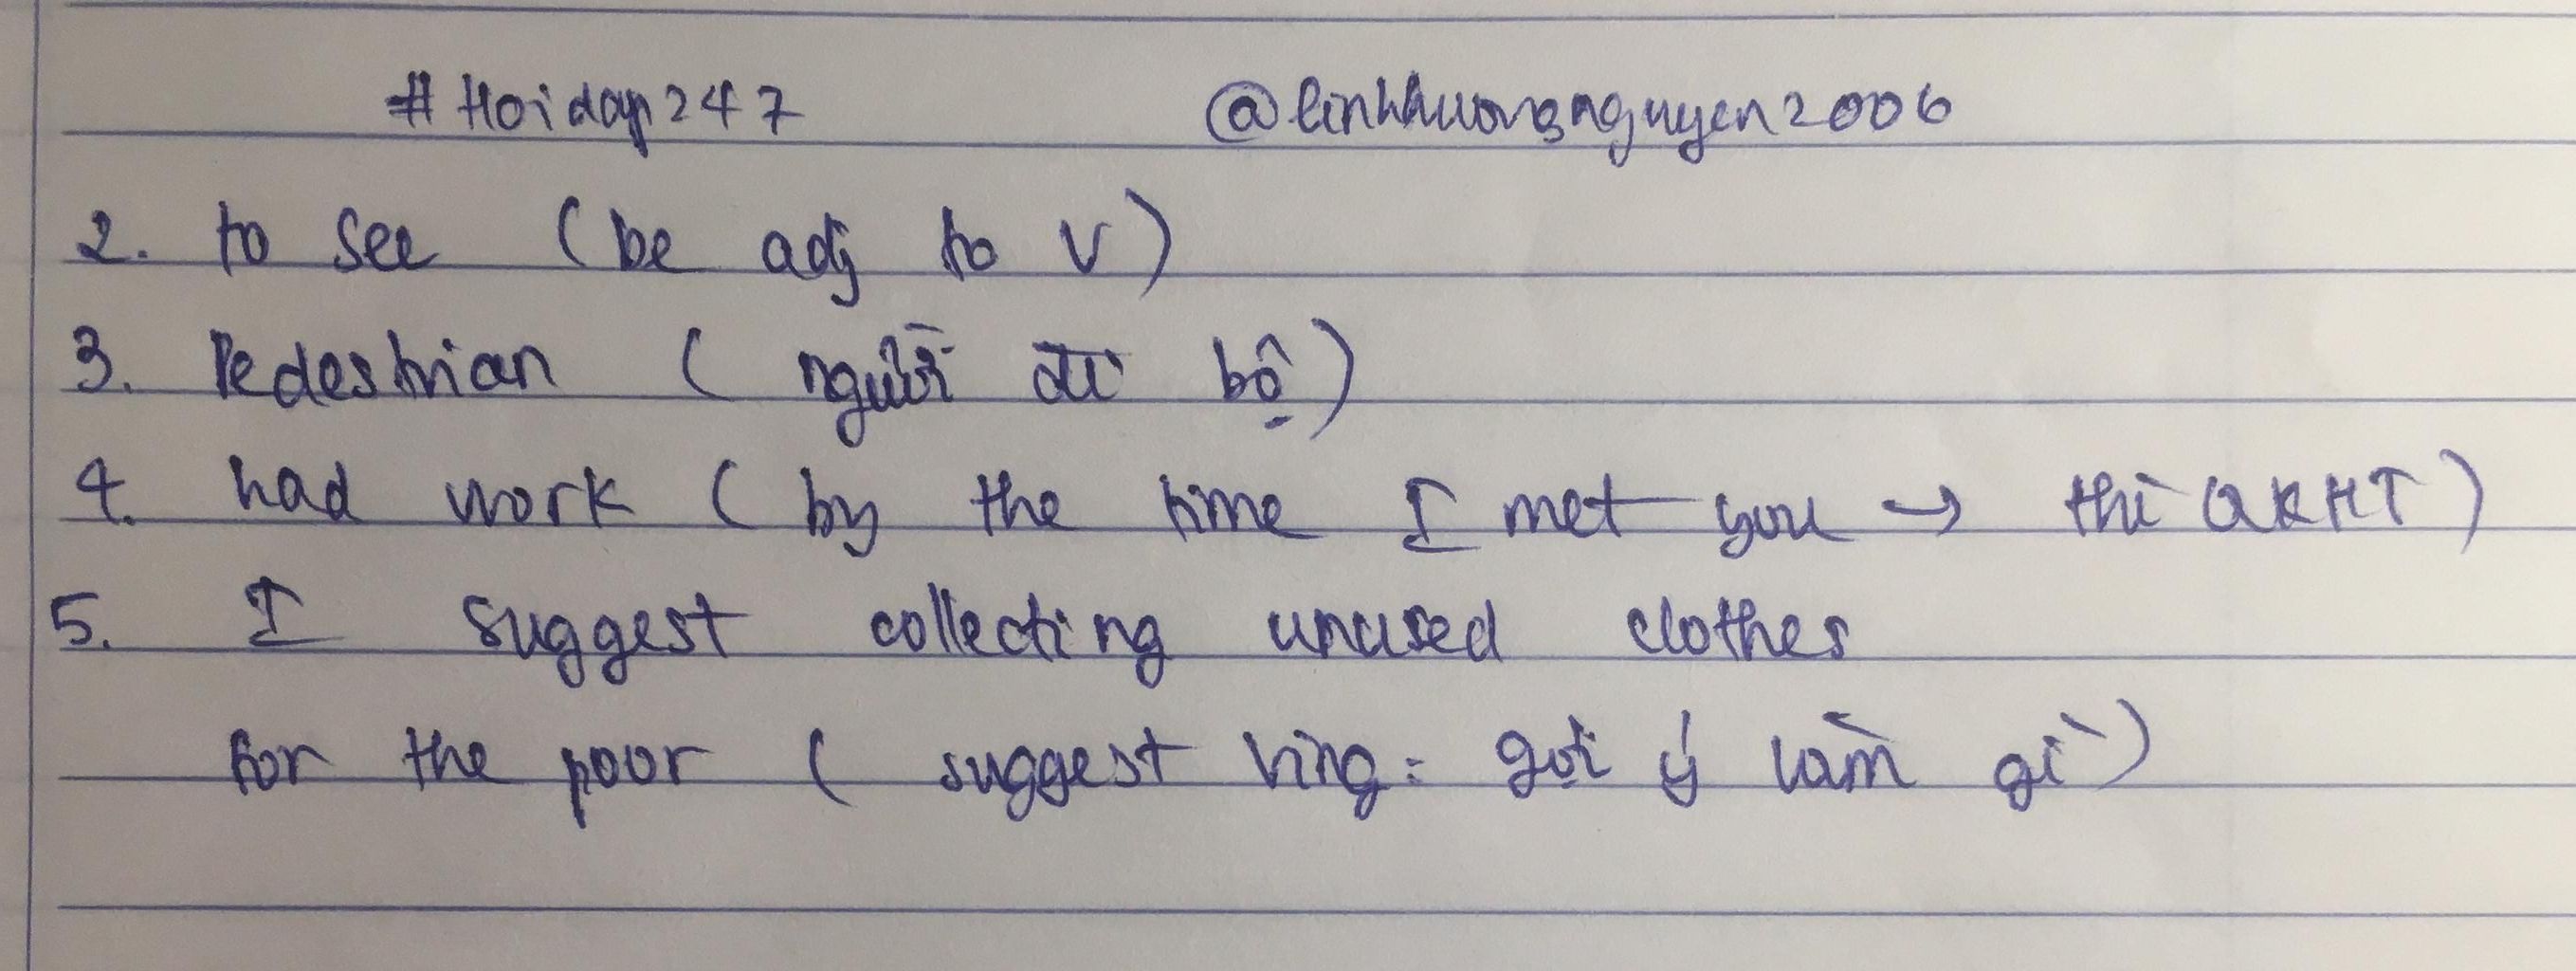 #Hoidap247 @linhhuongnguyen2006
2. to see (be adj to V)
3. Pedestrian (người đi bộ)
4. had work (by the time I met you → thì QKHT)
5. I suggest collecting unused clothes
for the poor (suggest Ving: gợi ý làm gì)